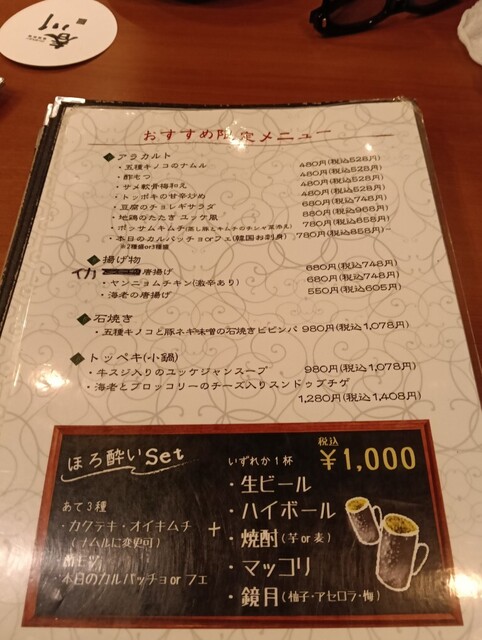 春川
おすすめ限定メニュー
アラカルト
・五種キノコのナムル 480円(税込528円)
・酢もつ 480円(税込528円)
・サメ軟骨梅和え 480円(税込528円)
・トッポキの甘辛炒め 480円(税込528円)
・豆腐のチョレギサラダ 680円(税込748円)
・地鶏のたたき ユッケ風 880円(税込968円)
・ポッサムキムチ(蒸し豚とキムチのチシャ菜添え) 780円(税込858円)
・本日のカルパッチョorフェ(韓国お刺身) 780円(税込858円)~
※2種盛or3種盛
揚げ物
イカ 唐揚げ 680円(税込748円)
・ヤンニョムチキン(激辛あり) 680円(税込748円)
・海老の唐揚げ 550円(税込605円)
石焼き
・五種キノコと豚ネギ味噌の石焼きビビンバ 980円(税込1,078円)
トッペキ(小鍋)
・牛スジ入りのユッケジャンスープ 980円(税込1,078円)
・海老とブロッコリーのチーズ入りスンドゥブチゲ
1,280円(税込1,408円)
ほろ酔いSet
税込
いずれか1杯 ¥1,000
あて3種
・カクテキ・オイキムチ
(ナムルに変更可)
・酢モツ
・本日のカルパッチョorフェ
+
・生ビール
・ハイボール
・焼酎(芋or麦)
・マッコリ
・鏡月(柚子・アセロラ・梅)